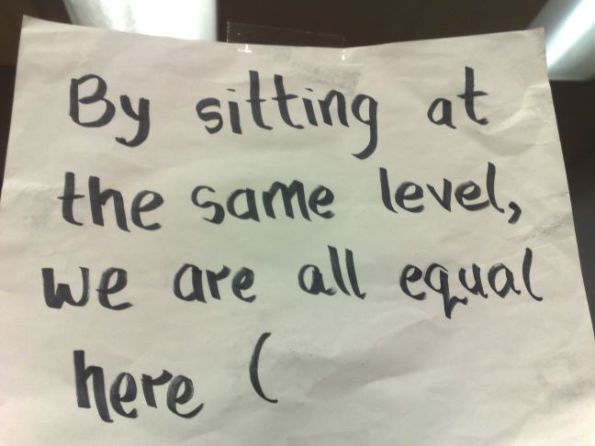 By sitting at
the same level,
we are all equal
here (